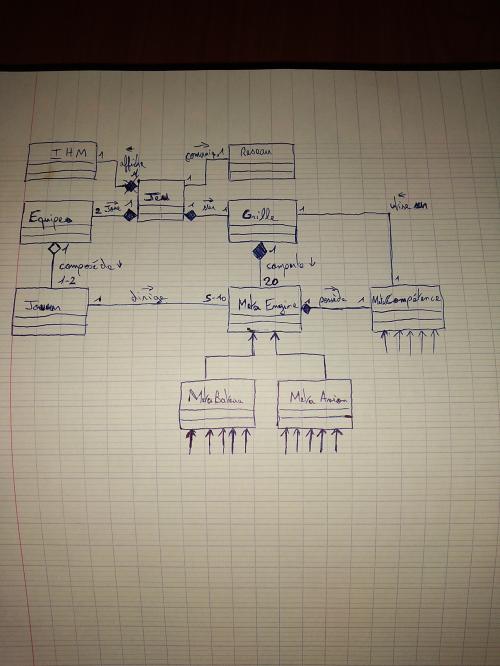 IHM
1
affiche
1
communique
1
1
Reseau
Jeu
Equipe
2
Joue
1
1
sur
1
Grille
1
utilise sur
1
composée de
1-2
1
comporte
20
1
Joueur
1
dirige
5-10
Meta Engine
possède
1
Meta Compétence
Meta Bateau
Meta Avion